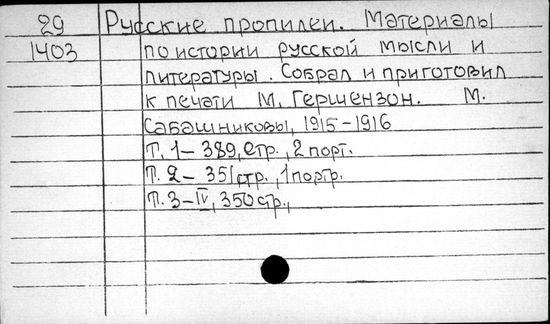 29 Русские пропилеи. Материалы
1403 по истории русской мысли и
литературы. Собрал и приготовил
к печати М. Гершензон. М.
Сабашниковы, 1915-1916
Т. 1 – 389, стр., 2 порт.
Т. 2 – 351 стр., 1 портр.
Т. 3 – IV, 350 стр.,